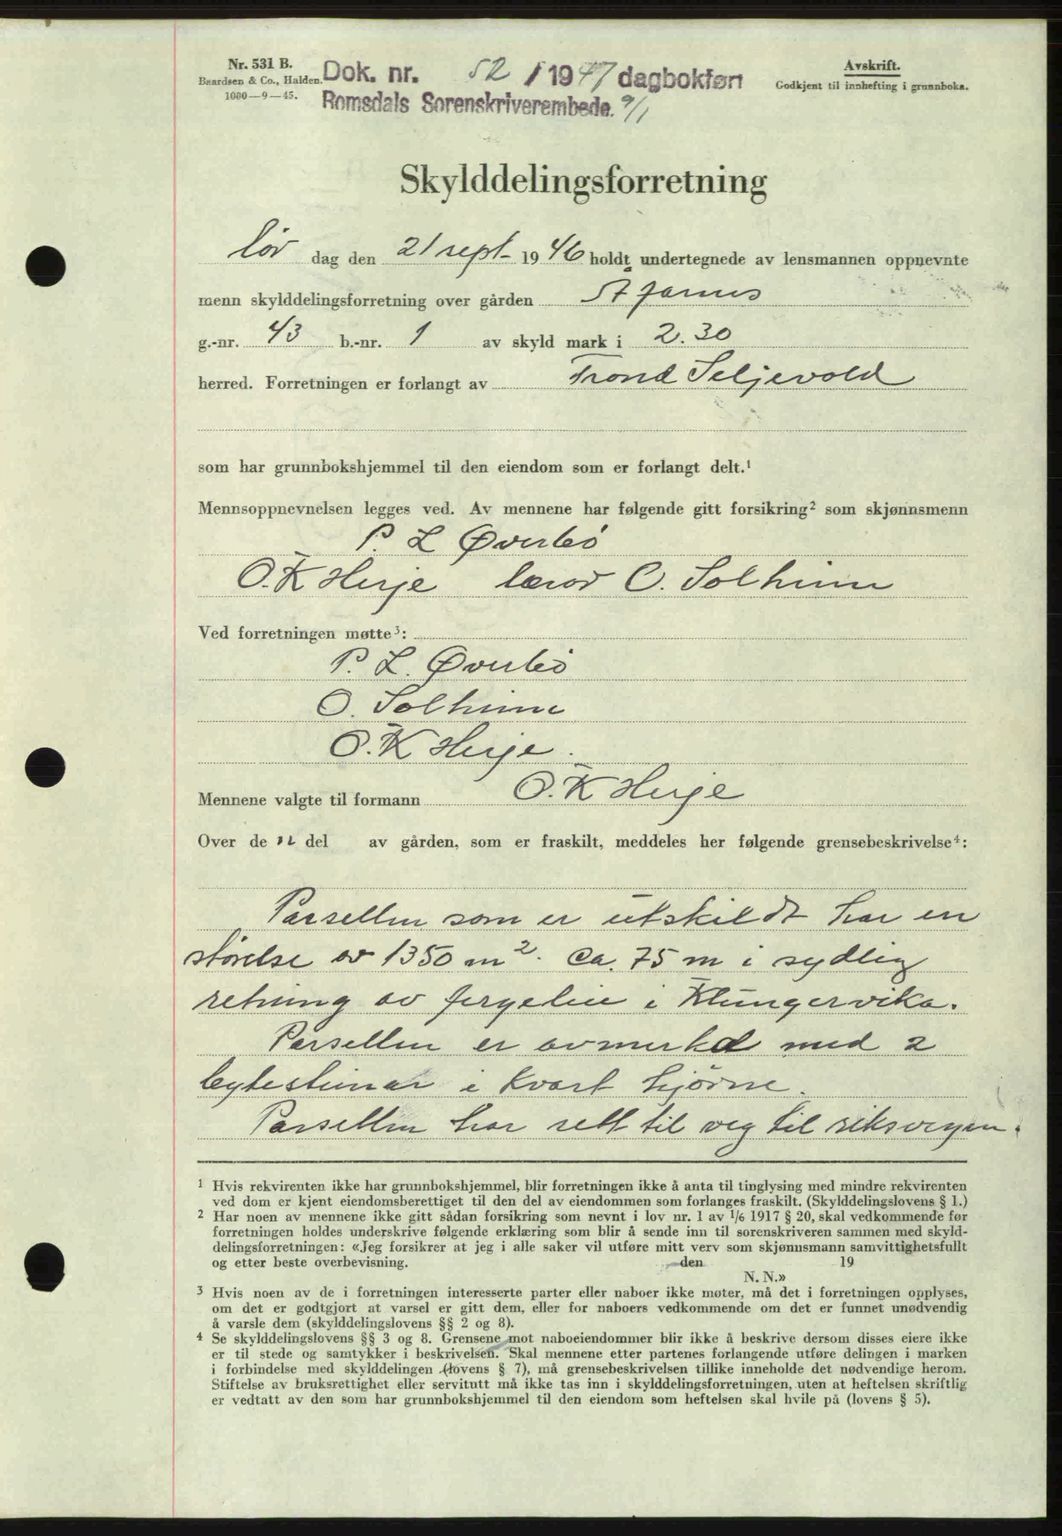 Nr. 531 B.
Baardsen & Co., Halden.
1000—9—45.
Dok. nr. 52 / 1947 dagbokført
Romsdals Sorenskriverembede. 9/1
Avskrift.
Godkjent til innhefting i grunnboka.
Skylddelingsforretning
Lør dag den 21 sept 1946 holdt undertegnede av lensmannen oppnevnte
menn skylddelingsforretning over gården
g.-nr. 43 b.-nr. 1 av skyld mark i 2.30
herred. Forretningen er forlangt av Trond Seljevold
som har grunnbokshjemmel til den eiendom som er forlangt delt.¹
Mennsoppnevnelsen legges ved. Av mennene har følgende gitt forsikring² som skjønnsmenn
P. L Øverbö
O. K Herje lærer O. Solheim
Ved forretningen møtte³:
P. L. Øverbö
O. Solheim
O. K Herje.
Mennene valgte til formann O. K Herje
Over de n del av gården, som er fraskilt, meddeles her følgende grensebeskrivelse⁴:
Parsellen som er utskildt har en
störelse av 1350 m². Ca. 75 m i sydlig
retning av fergeleie i Klungervika.
Parsellen er avmerkd med 2
bytesteinar i kvart hjörne.
Parsellen har rett til veg til riksvegen.
¹ Hvis rekvirenten ikke har grunnbokshjemmel, blir forretningen ikke å anta til tinglysing med mindre rekvirenten
ved dom er kjent eiendomsberettiget til den del av eiendommen som forlanges fraskilt. (Skylddelingslovens § 1.)
² Har noen av mennene ikke gitt sådan forsikring som nevnt i lov nr. 1 av ¹/6 1917 § 20, skal vedkommende før
forretningen holdes underskrive følgende erklæring som blir å sende inn til sorenskriveren sammen med skyld-
delingsforretningen: «Jeg forsikrer at jeg i alle saker vil utføre mitt verv som skjønnsmann samvittighetsfullt
og etter beste overbevisning. den 19
N. N.»
³ Hvis noen av de i forretningen interesserte parter eller naboer ikke møter, må det i forretningen opplyses,
om det er godtgjort at varsel er gitt dem, eller for naboers vedkommende om det er funnet unødvendig
å varsle dem (skylddelingslovens §§ 2 og 8).
⁴ Se skylddelingslovens §§ 3 og 8. Grensene mot naboeiendommer blir ikke å beskrive dersom disses eiere ikke
er til stede og samtykker i beskrivelsen. Skal mennene etter partenes forlangende utføre delingen i marken
i forbindelse med skylddelingen (lovens § 7), må grensebeskrivelsen tillike inneholde det nødvendige herom.
Stiftelse av bruksrettighet eller servitutt må ikke tas inn i skylddelingsforretningen, uten at heftelsen skriftlig
er vedtatt av den som har grunnbokshjemmel til den eiendom som heftelsen skal hvile på (lovens § 5).